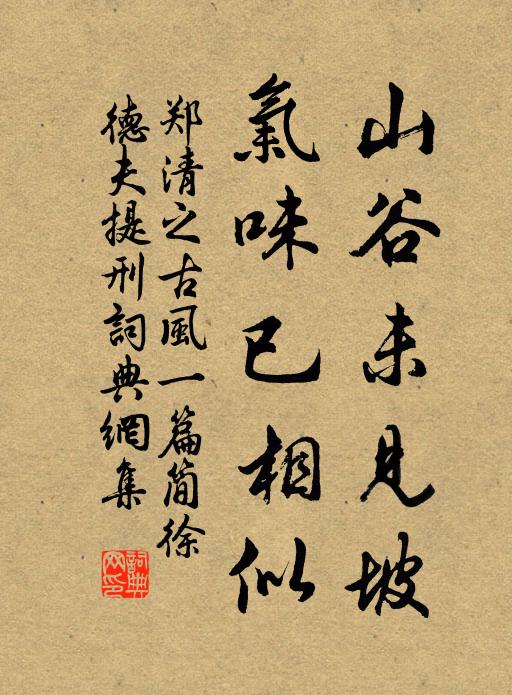 山谷未見坡
氣味已相似
郑清之古風一篇简徐
德夫提刑詞典網集
詞典網印